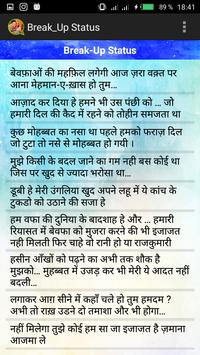 89% 18:41
Break_Up Status
Break-Up Status
बेवफ़ाओं की महफ़िल लगेगी आज ज़रा वक़्त पर
आना मेहमान-ए-ख़ास हो तुम...
आज़ाद कर दिया हे हमने भी उस पंछी को ... जो
हमारी दिल की कैद में रहने को तोहीन समजता था
कुछ मोहब्बत का नसा था पहले हमको फराज़ दिल
जो टुटा तो नसे से मोहब्बत हो गयी ।
मुझे किसी के बदल जाने का गम नही बस कोई था
जिस पर खुद से ज्यादा भरोसा था...
डूबी हे मेरी उंगलिया खुद अपने लहू में ये कांच के
टुकडो को उठाने की सजा हे
हम वफा की दुनिया के बादशाह हे और ... हमारी
रियासत में बेवफा को मुजरा करने की भी इजाजत
नही मिलती फिर चाहे वो रानी हो या राजकुमारी
हसीन आँखों को पढ़ने का अभी तक शौक है
मुझको... मुहब्बत में उजड़ कर भी मेरी ये आदत नहीं
बदली...
लगाकर आग़ सीने में कहाँ चले हो तुम हमदम ?
अभी तो राख़ उडने दो तमाशा और भी होगा...
नहीं मिलेगा तुझे कोई हम सा जा इजाजत है ज़माना
आजमा ले